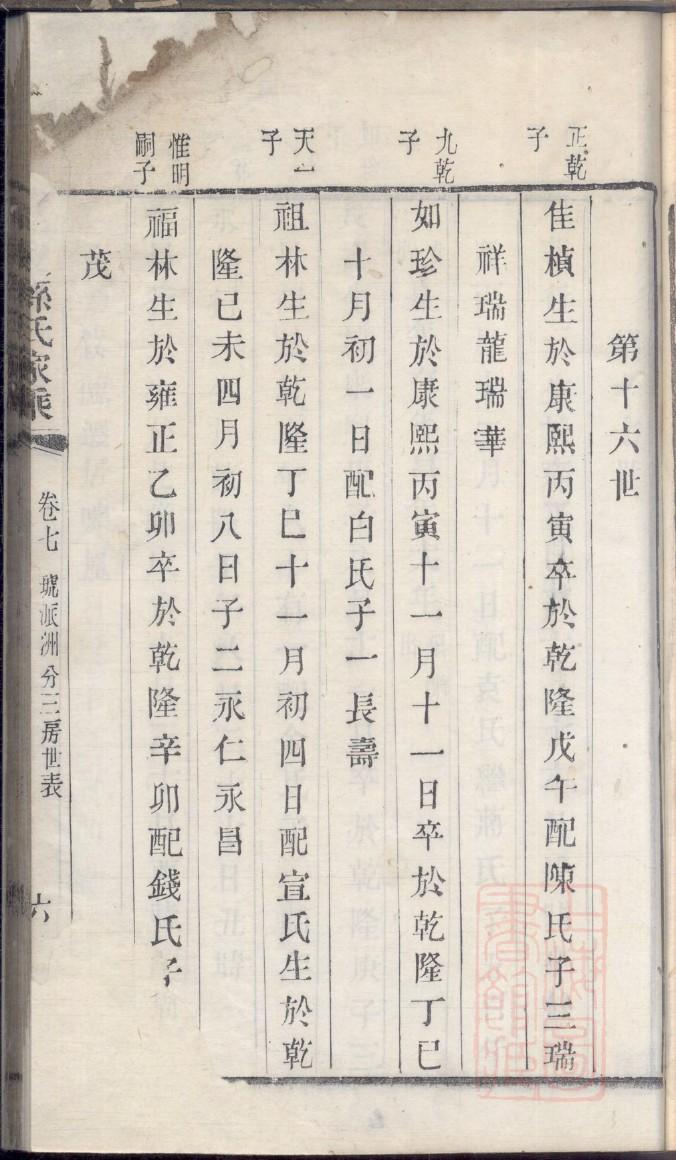 第十六世
正乾
子
佳楨生於康熙丙寅卒於乾隆戊午配陳氏子三瑞
祥瑞龍瑞華
九乾
子
如珍生於康熙丙寅十一月十一日卒於乾隆丁巳
十月初一日配白氏子一長壽
天一
子
祖林生於乾隆丁巳十一月初四日配宣氏生於乾
隆己未四月初八日子二永仁永昌
惟明
嗣子
福林生於雍正乙卯卒於乾隆辛卯配錢氏子
茂
孫氏家乘
卷七 琥派洲分三房世表
六